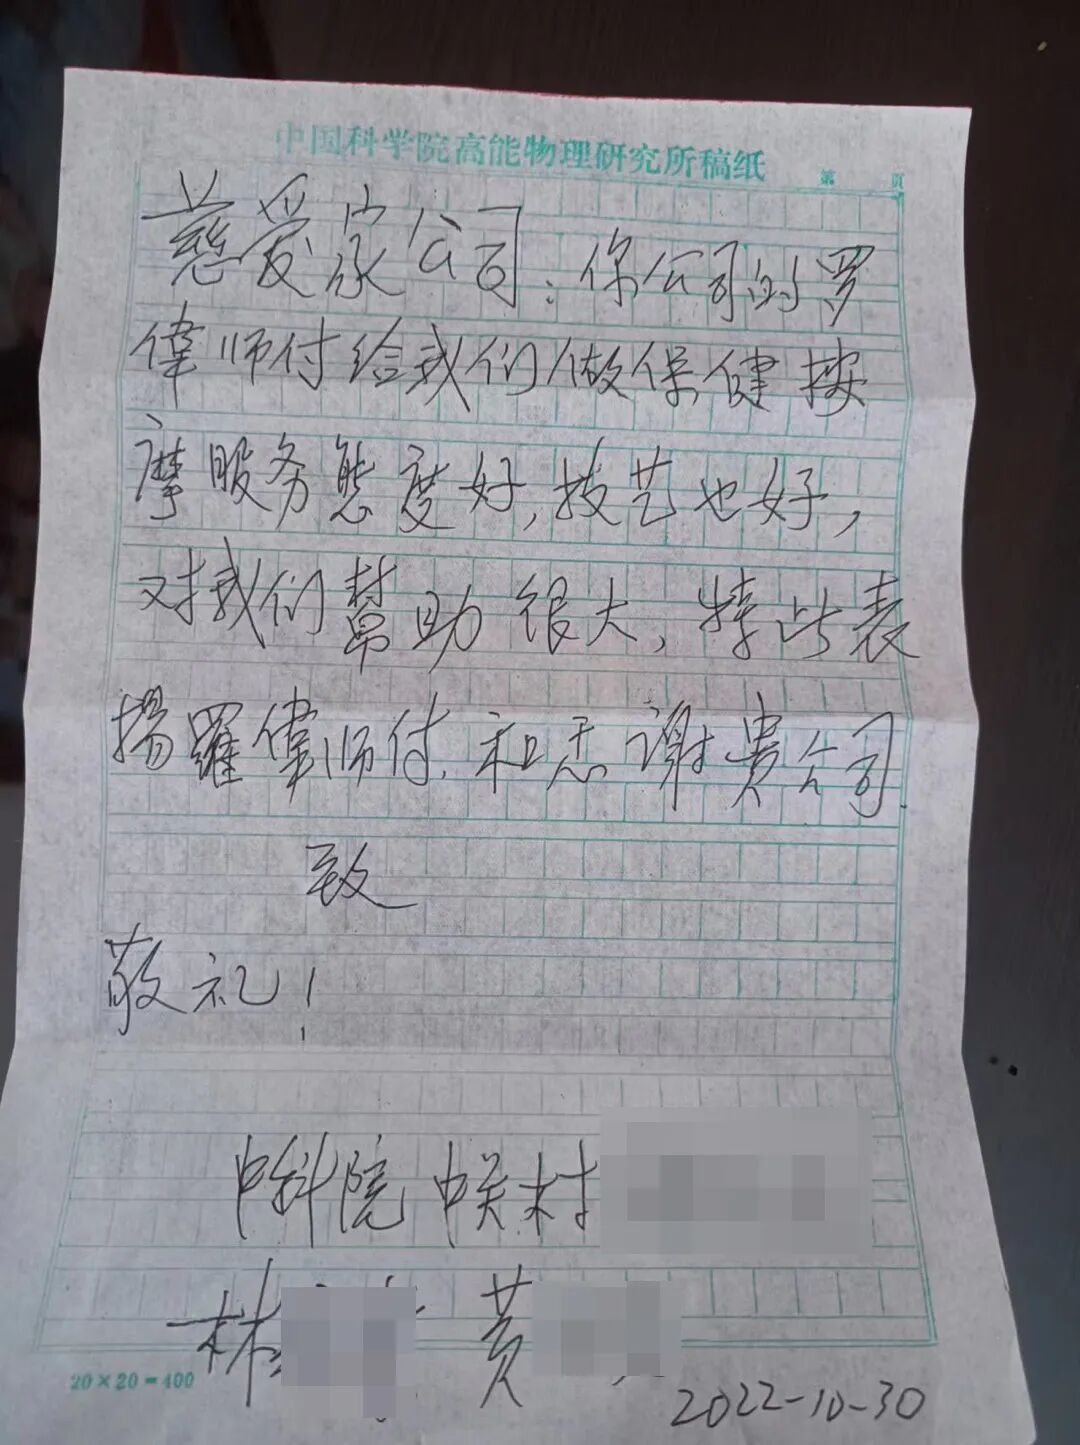 中国科学院高能物理研究所稿纸
第 页
慈爱家公司：你公司的罗
偉师付给我们做保健按
摩服务態度好，技艺也好，
对我们幫助很大，特此表
揚羅偉师付．和感谢贵公司．
致
敬礼！
中科院中关村
林 黄
20×20=400
2022-10-30